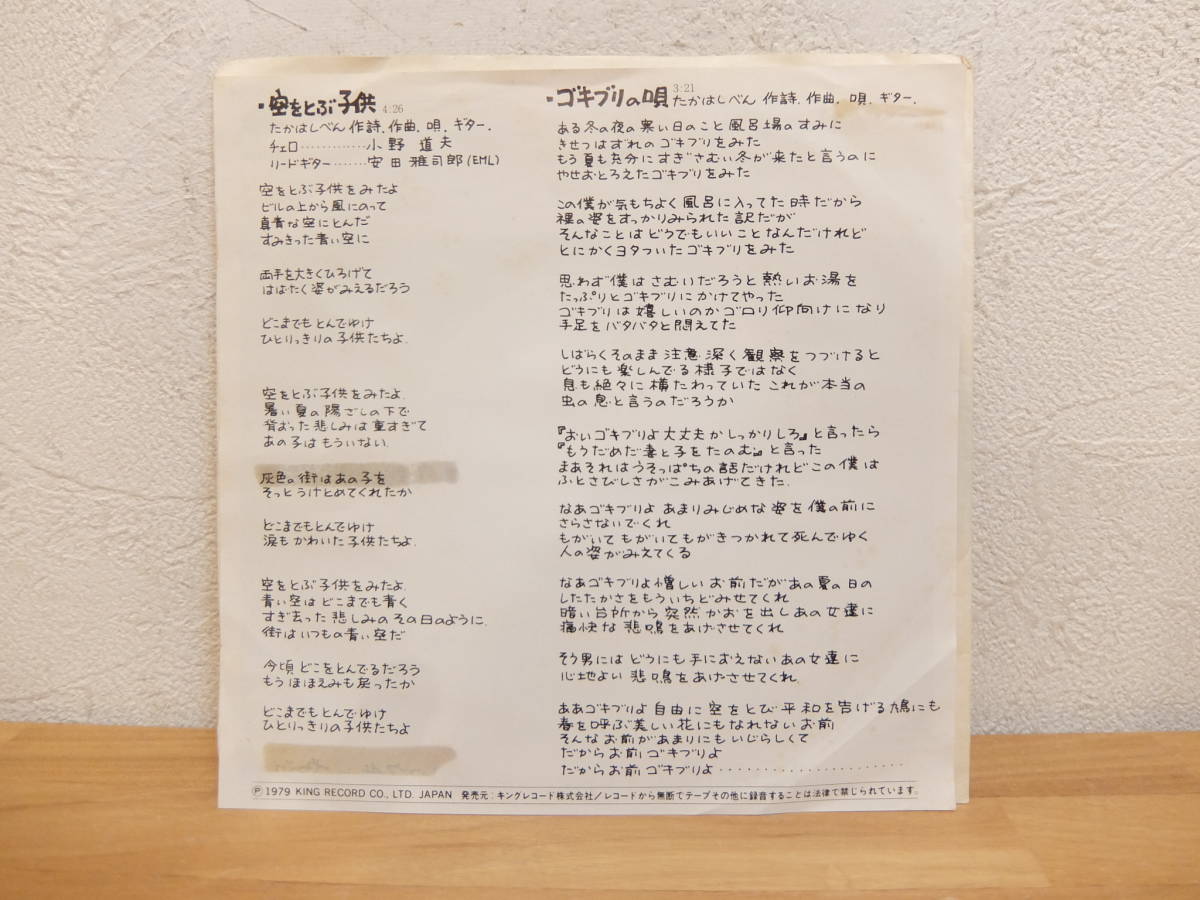 ・空をとぶ子供 4:26
たかはしべん 作詩. 作曲. 唄. ギター.
チェロ・・・・・・・・・・・・・小野 道夫
リードギター・・・・・・・安田 雅司郎(EML)
空をとぶ子供をみたよ
ビルの上から風にのって
真青な空にとんだ
すみきった青い空に
両手を大きくひろげて
はばたく姿がみえるだろう
どこまでもとんでゆけ
ひとりっきりの子供たちよ.
空をとぶ子供をみたよ.
暑い夏の陽ざしの下で
背おった悲しみは重すぎて
あの子はもういない.
灰色の街はあの子を
そっとうけとめてくれたか
どこまでもとんでゆけ
涙もかわいた子供たちよ.
空をとぶ子供をみたよ.
青い空はどこまでも青く
すぎ去った悲しみのその日のように.
街はいつもの青い空だ
今頃どこをとんでるだろう
もうほほえみも戻ったか
どこまでもとんでゆけ
ひとりっきりの子供たちよ
・ゴキブリの唄 3:21
たかはしべん 作詩. 作曲. 唄. ギター.
ある冬の夜の寒い日のこと風呂場のすみに
きせつはずれのゴキブリをみた
もう夏も充分にすぎさむい冬が来たと言うのに
やせおとろえたゴキブリをみた
この僕が気もちよく風呂に入ってた時だから
裸の姿をすっかりみられた訳だが
そんなことはどうでもいいことなんだけれど
とにかくヨタついたゴキブリをみた
思わず僕はさむいだろうと熱いお湯を
たっぷりとゴキブリにかけてやった
ゴキブリは嬉しいのかゴロリ仰向けになり
手足をバタバタと悶えてた
しばらくそのまま注意深く観察をつづけると
どうにも楽しんでる様子ではなく
息も絶々に横たわっていた これが本当の
虫の息と言うのだろうか
『おいゴキブリよ大丈夫かしっかりしろ』と言ったら
『もうだめだ妻と子をたのむ』と言った
まあそれはうそっぱちの話だけれどこの僕は
ふとさびしさがこみあげてきた.
なあゴキブリよ あまりみじめな姿を僕の前に
さらさないでくれ
もがいてもがいてもがきつかれて死んでゆく
人の姿がみえてくる
なあゴキブリよ憎しいお前だがあの夏の日の
したたかさをもういちどみせてくれ
暗い台所から突然かおを出しあの女達に
痛快な悲鳴をあげさせてくれ
そう男にはどうにも手におえないあの女達に
心地よい悲鳴をあげさせてくれ
ああゴキブリよ自由に空をとび平和を告げる鳩にも
春を呼ぶ美しい花にもなれないお前
そんなお前があまりにもいじらしくて
だからお前ゴキブリよ
だからお前ゴキブリよ・・・・・・・・・・・・・・・・・・・・・
Ⓟ1979 KING RECORD CO., LTD. JAPAN 発売元：キングレコード株式会社/レコードから無断でテープその他に録音することは法律で禁じられています。